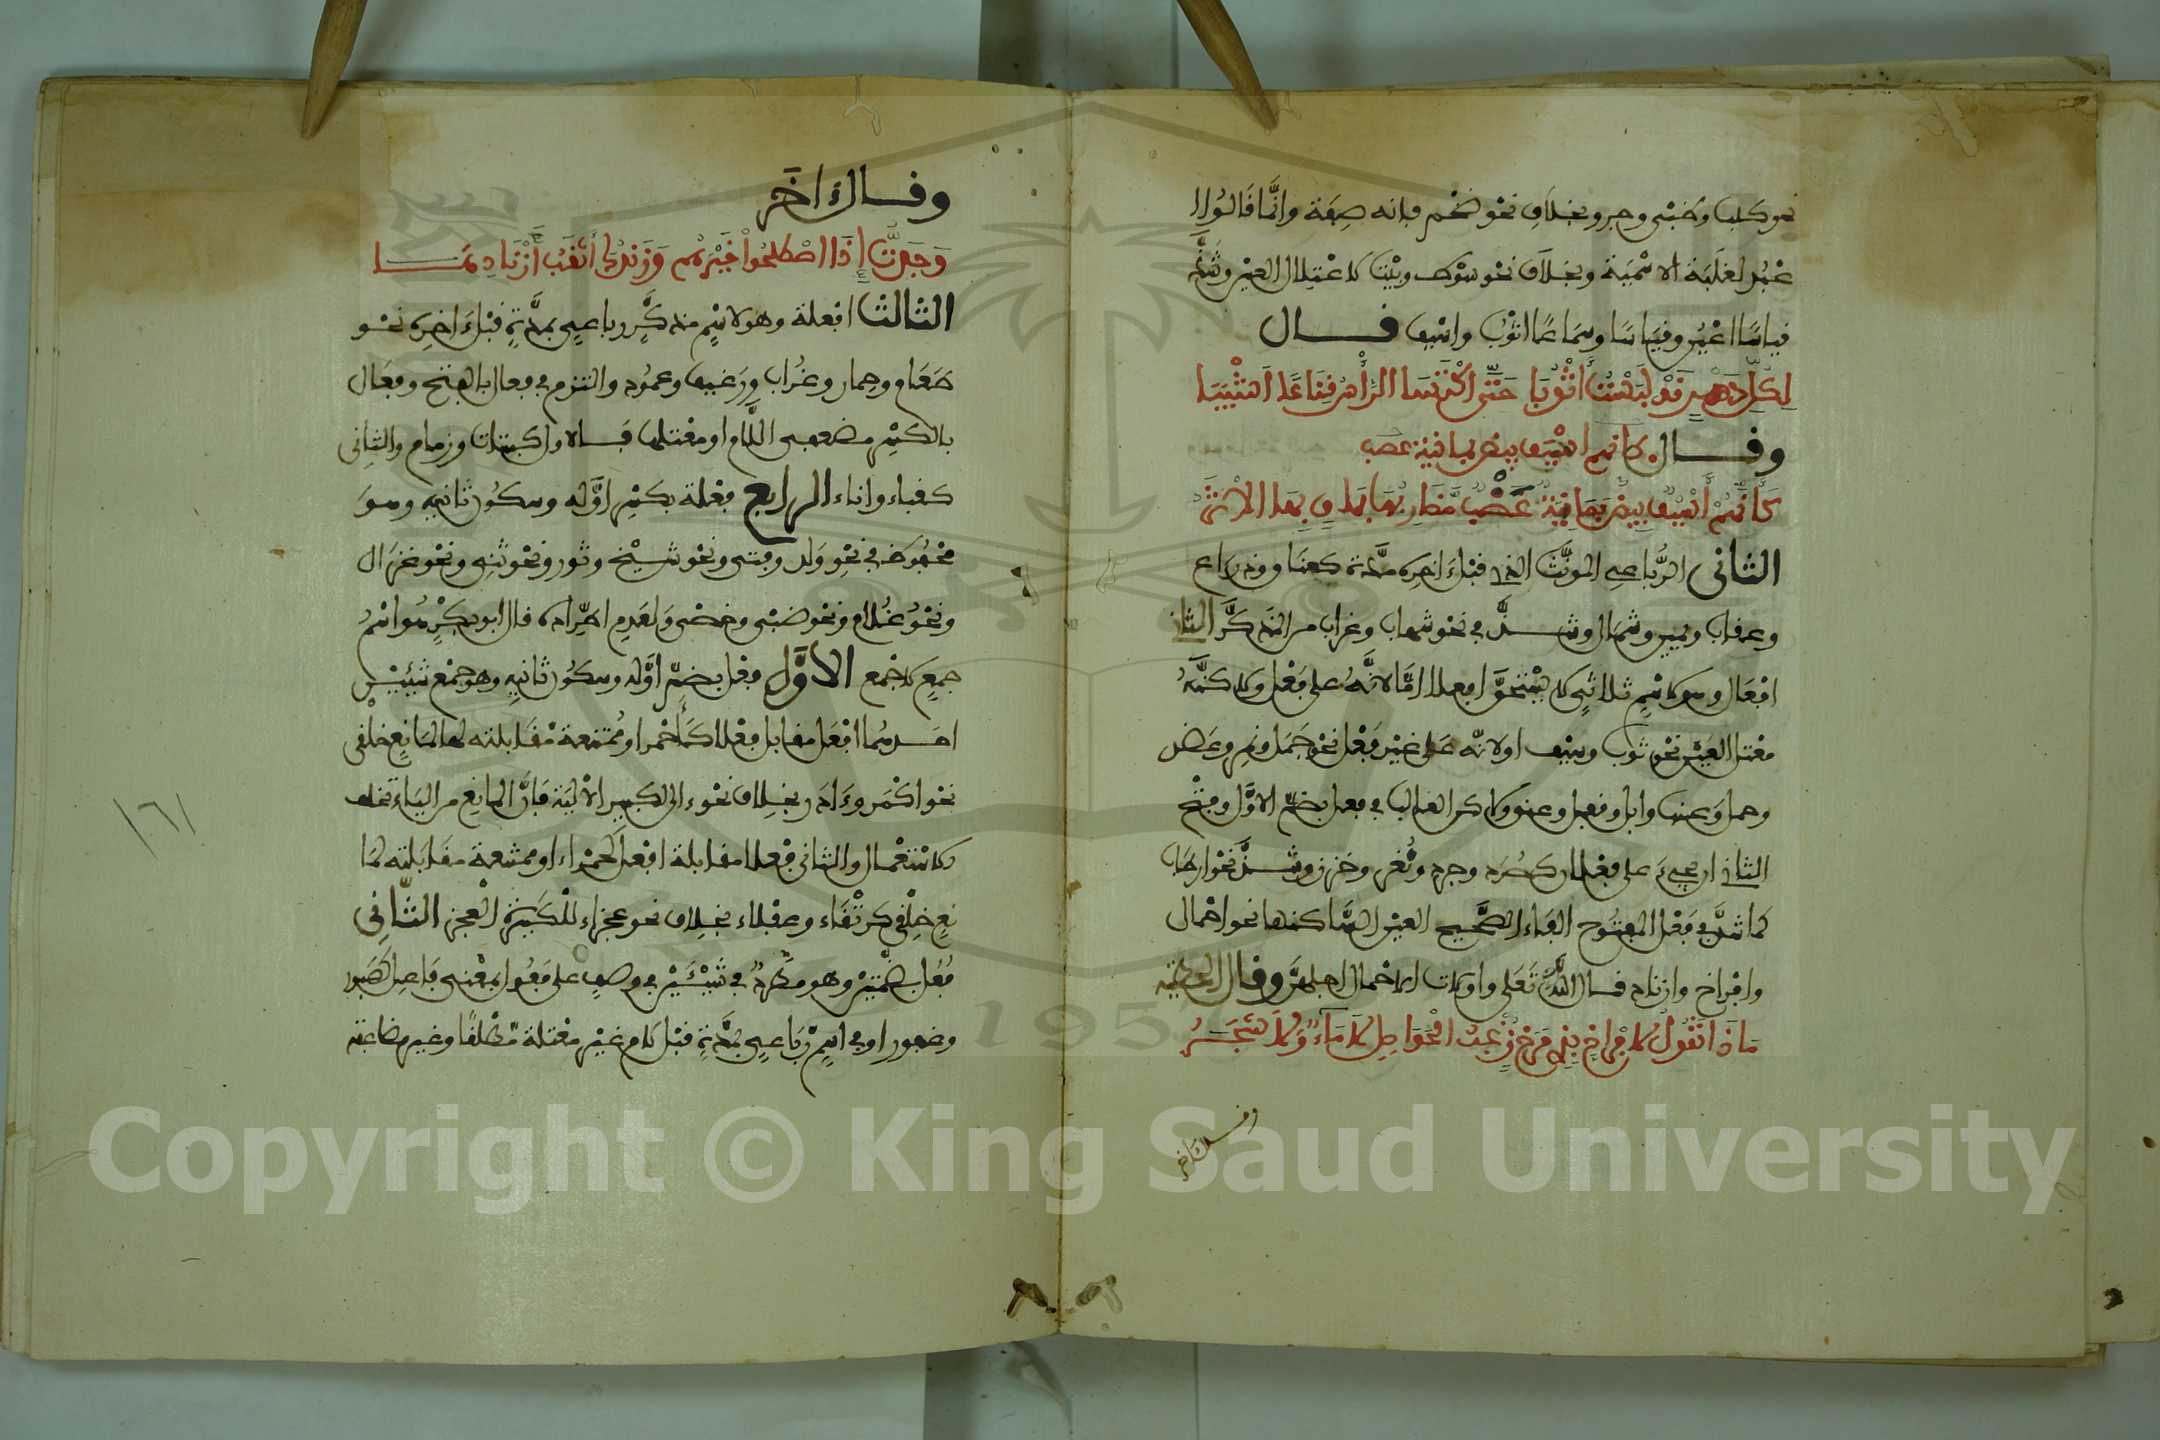 نحو كلب وظبي وجرو بخلاف نحو ضخم فإنه صفة وانما قالوا ا
عبد لغلبة الاسمية وبخلاف نحو سوط وبيت لاعتلال العين وشذ
قياسا اعين وقياسا وسماعا اثوب واسيف قال
لكل دهر قد لبست أثوبا حتى اكتسى الرأس قناعا اشيبا
وقال كانهم اسيف بيض يمانية عضب
كأنهم أسيف بيض يمانية عضب مضاربها باق بها الأثر
الثاني الرباعي المؤنث الذي قبل اخره مدة كعناق وذراع
وعقاب ويمين وشمال وشذ في نحو شهاب وغراب من المذكر الثاني
افعال وهو لاسم ثلاثي لا يستحق افعلا اما لانه على فعل ولاكنه
معتل العين نحو ثوب وسيف او لانه على غير فعل نحو جمل ونمر وعضد
وحمل وعنب وابل وقفل وعنق ولاكن الغالب في فعل بضم الاول وفتح
الثاني ان يجيء على فعلان كصرد وجرذ ونغر وخزز وشذ نحو ارطاب
كما شذ في فعل المفتوح الفاء الصحيح العين الساكنها نحو احمال
وافراخ وازناد قال الله تعلى واولات الاحمال اجلهن وقال الحطيئة
ماذا تقول لافراخ بذي مرخ زغب الحواصل لا ماء ولا شجر
وقال ءاخر
وقال ءاخر
وجدت إذا اصطلحوا خيرهم وزندك أثقب أزنادها
الثالث افعلة وهو لاسم مذكر رباعي بمدة قبل اخره نحو
طعام وحمار وغراب ورغيف وعمود والتزم في فعال بالفتح وفعال
بالكسر مضعفي اللام او معتلها فالاول كبتات وزمام والثاني
كقباء واناء الرابع فعلة بكسر اوله وسكون ثانيه وهو
محفوظ في نحو ولد وفتى ونحو شيخ وثور ونحو ثنى ونحو غزال
ونحو غلام ونحو صبي وخصي ولعدم اطراده قال ابو بكر هو اسم
جمع لا جمع الاول فعل بضم اوله وسكون ثانيه وهو جمع شيئين
احدهما افعل مقابل فعلا كأحمر او ممتنعة مقابلته لها لمانع خلقي
نحو اكمر وءادر بخلاف نحو ءالى لكبير الالية فان المانع من الياء تخلف
لاستعمال والثاني فعلا مقابلة افعل كحمراء او ممتنعة مقابلته لما
نع خلقي كرتقاء وعفلاء بخلاف نحو عجزاء لكبيرة العجز الثاني
فعل بضمتين وهو مطرد في شيئين في وصف على فعول بمعنى فاعل كصبور
وغفور او في اسم رباعي بمدة قبل لام غير معتلة مطلقا وغير مضاعفة
١٦١